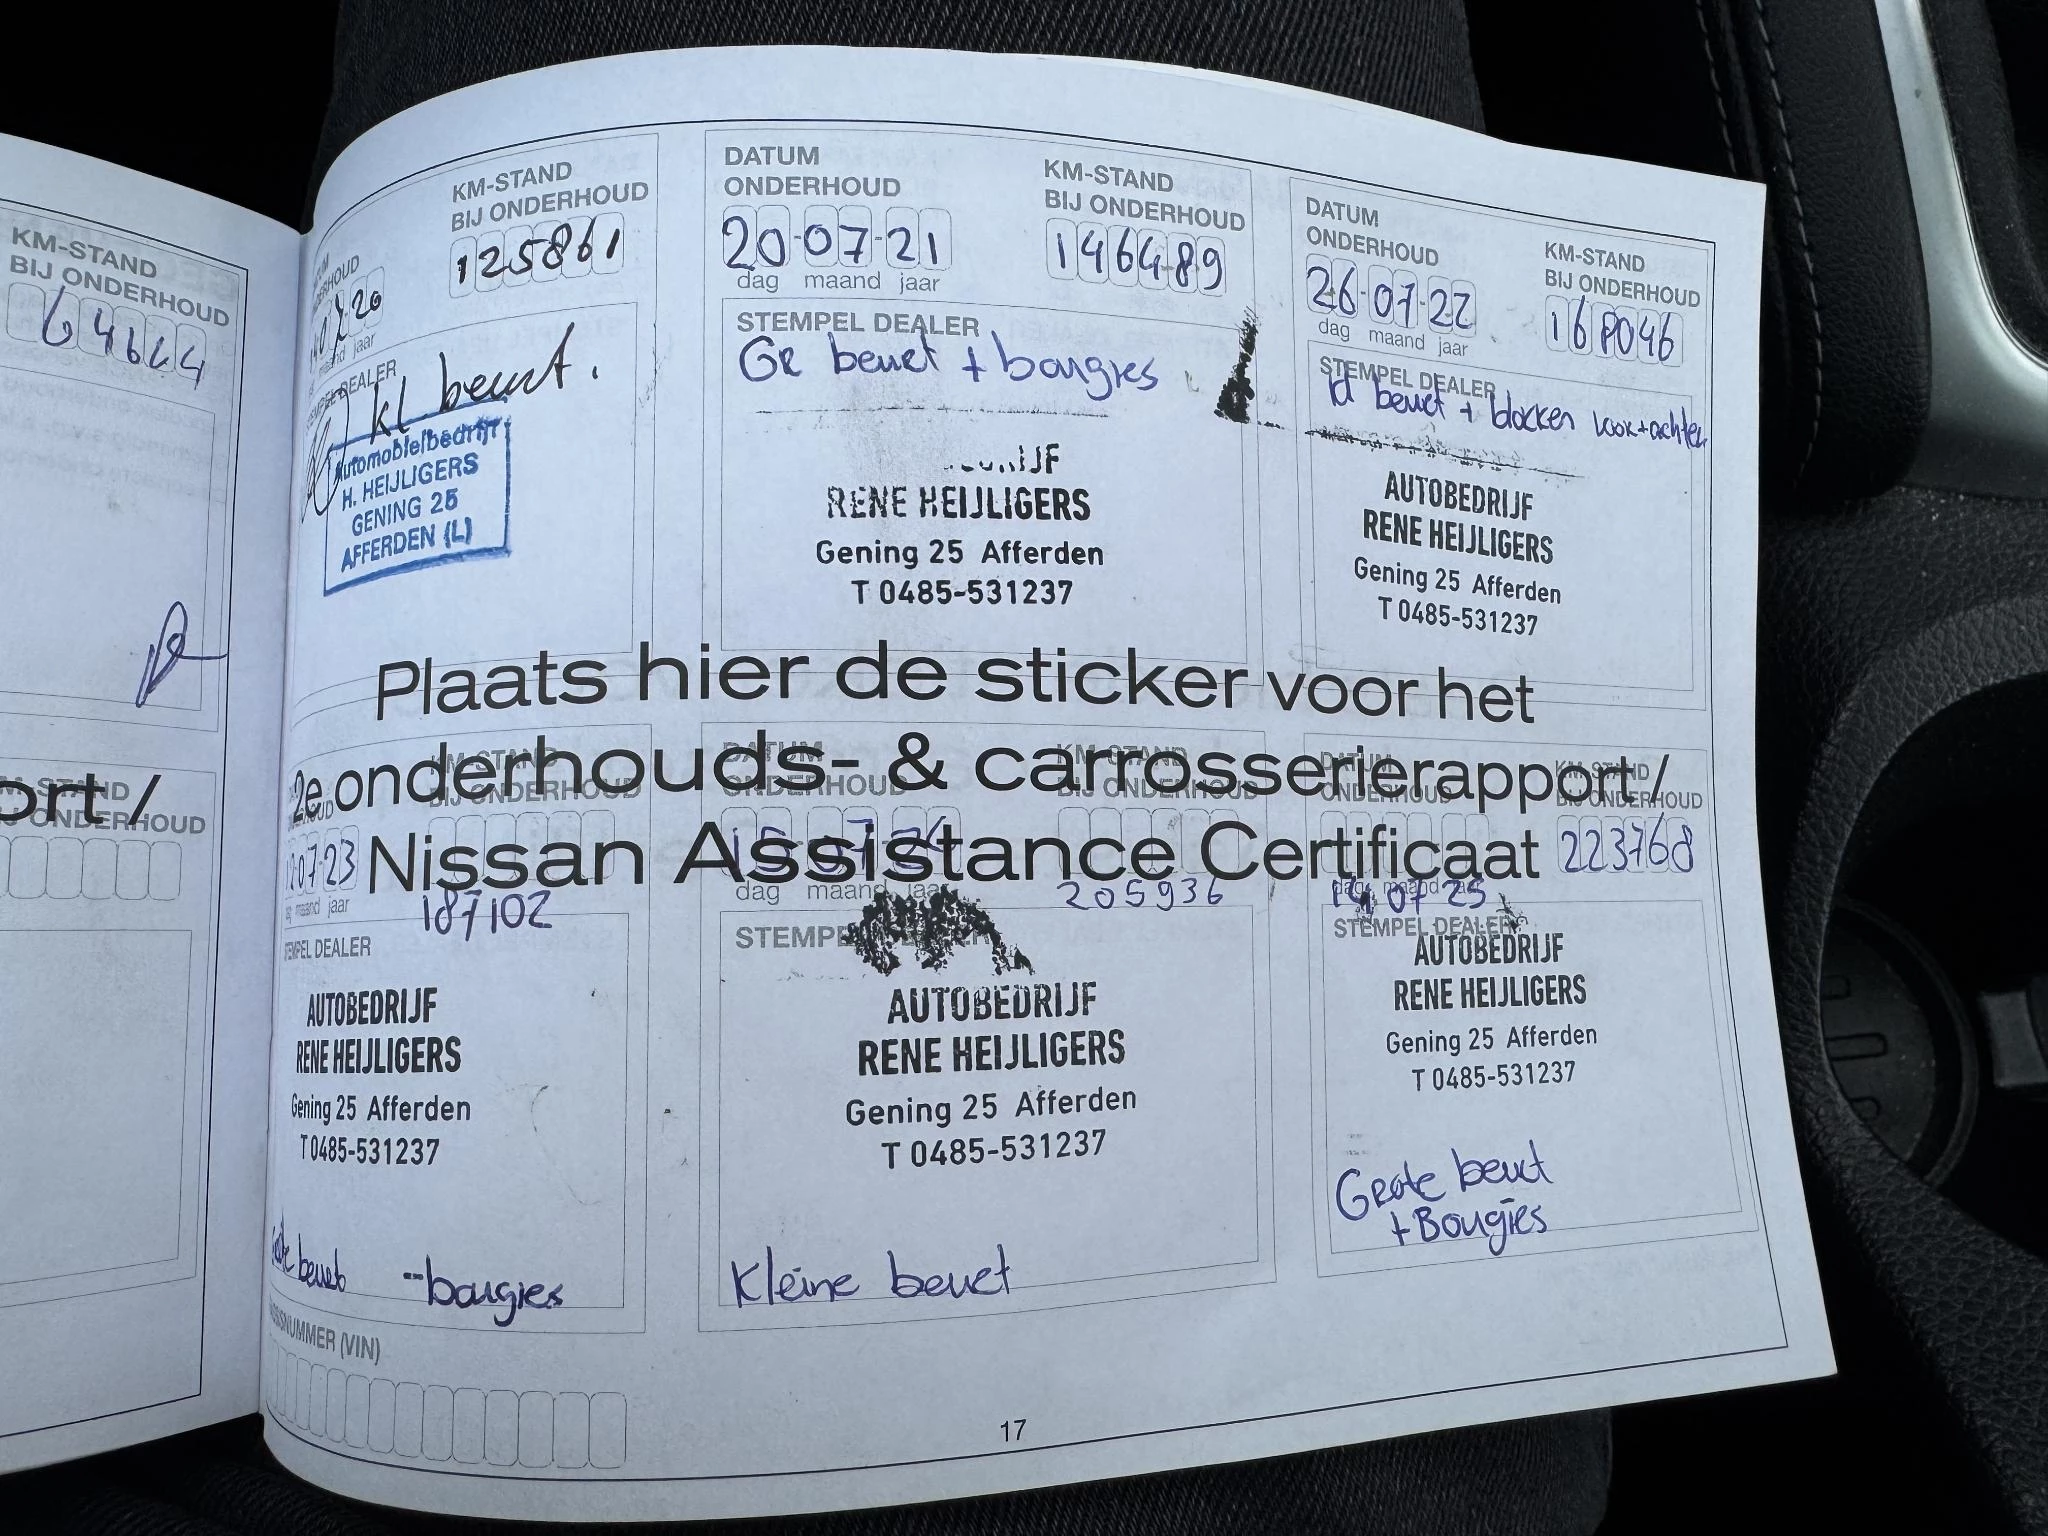 KM-STAND
BIJ ONDERHOUD
ort /
KM-STAND
BIJ ONDERHOUD
125861
jaar
kl beurt.
Automobielbedrijf
H. HEIJLIGERS
GENING 25
AFFERDEN (L)
DATUM
ONDERHOUD
20-07-21
dag maand jaar
KM-STAND
BIJ ONDERHOUD
146489
STEMPEL DEALER
Gr beurt + bougies
RENE HEIJLIGERS
Gening 25 Afferden
T 0485-531237
DATUM
ONDERHOUD
26-07-22
dag maand jaar
KM-STAND
BIJ ONDERHOUD
STEMPEL DEALER
kl beurt + blocken voor+achter
AUTOBEDRIJF
RENE HEIJLIGERS
Gening 25 Afferden
T 0485-531237
Plaats hier de sticker voor het
2e onderhouds- & carrosserierapport /
Nissan Assistance Certificaat
KM-STAND
BIJ ONDERHOUD
07-23
maand jaar
187102
STEMPEL DEALER
AUTOBEDRIJF
RENE HEIJLIGERS
Gening 25 Afferden
T 0485-531237
beurt bougies
(VIN)
DATUM
ONDERHOUD
dag maand jaar
KM-STAND
BIJ ONDERHOUD
205936
STEMPEL DEALER
AUTOBEDRIJF
RENE HEIJLIGERS
Gening 25 Afferden
T 0485-531237
Kleine beurt
DATUM
ONDERHOUD
KM-STAND
BIJ ONDERHOUD
223768
dag maand jaar
14 07 25
STEMPEL DEALER
AUTOBEDRIJF
RENE HEIJLIGERS
Gening 25 Afferden
T 0485-531237
Grote beurt
+ Bougies
17